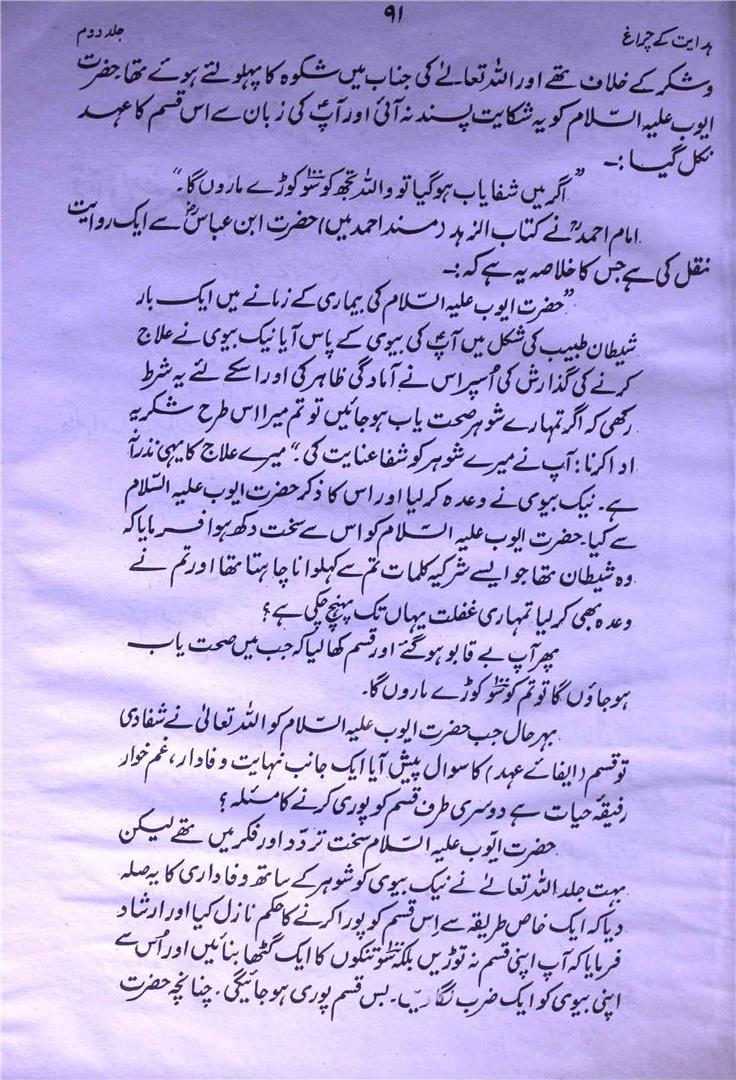 ۹۱
ہدایت کے چراغ
جلد دوم
و شکر کے خلاف تھے اور اللہ تعالےٰ کی جناب میں شکوہ کا پہلو لئے ہوئے تھا۔ حضرت
ایوب علیہ السّلام کو یہ شکایت پسند نہ آئی اور آپؑ کی زبان سے اس قسم کا عہد
نکل گیا :۔
”اگر میں شفا یاب ہو گیا تو واللہ تجھ کو سَو ۱۰۰ کوڑے ماروں گا۔“
امام احمدؒ نے کتاب الزہد (مسند احمد میں) حضرت ابن عباسؓ سے ایک روایت
نقل کی ہے جس کا خلاصہ یہ ہے کہ :۔
”حضرت ایوب علیہ السّلام کی بیماری کے زمانے میں ایک بار
شیطان طبیب کی شکل میں آپؑ کی بیوی کے پاس آیا نیک بیوی نے علاج
کرنے کی گذارش کی اُسپر اس نے آمادگی ظاہر کی اور اسکے لئے یہ شرط
رکھی کہ اگر تمہارے شوہر صحت یاب ہو جائیں تو تم میرا اس طرح شکریہ
ادا کرنا: آپ نے میرے شوہر کو شفا عنایت کی۔“ میرے علاج کا یہی نذرانہ
ہے۔ نیک بیوی نے وعدہ کر لیا اور اس کا ذکر حضرت ایوب علیہ السّلام
سے کیا۔ حضرت ایوب علیہ السّلام کو اس سے سخت دکھ ہوا فرمایا کہ
وہ شیطان تھا جو ایسے شرکیہ کلمات تم سے کہلوانا چاہتا تھا اور تم نے
وعدہ بھی کر لیا تمہاری غفلت یہاں تک پہنچ چکی ہے؟
پھر آپ بے قابو ہو گئے اور قسم کھا لیا کہ جب میں صحت یاب
ہو جاؤں گا تو تم کو سَو ۱۰۰ کوڑے ماروں گا۔
بہر حال جب حضرت ایوب علیہ السّلام کو اللہ تعالیٰ نے شفا دی
تو قسم (ایفائے عہد) کا سوال پیش آیا ایک جانب نہایت وفادار، غم خوار
رفیقۂ حیات ہے دوسری طرف قسم کو پوری کرنے کا مسئلہ؟
حضرت ایّوب علیہ السّلام سخت تردّد اور فکر میں تھے لیکن
بہت جلد اللہ تعالےٰ نے نیک بیوی کو شوہر کے ساتھ وفاداری کا یہ صلہ
دیا کہ ایک خاص طریقہ سے اِس قسم کو پورا کرنے کا حکم نازل کیا اور ارشاد
فرمایا کہ آپ اپنی قسم نہ توڑیں بلکہ سَو ۱۰۰ تنکوں کا ایک گٹھا بنائیں اور اُس سے
اپنی بیوی کو ایک ضرب لگا دیں۔ بس قسم پوری ہو جائیگی۔ چنانچہ حضرت